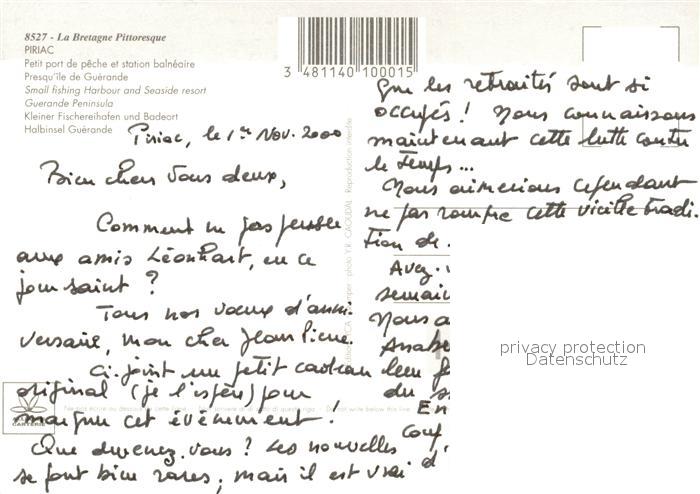 8527 - La Bretagne Pittoresque
PIRIAC
Petit port de pêche et station balnéaire
Presqu'île de Guérande
Small fishing Harbour and Seaside resort
Guerande Peninsula
Kleiner Fischereihafen und Badeort
Halbinsel Guérande
3 481140 100015
Piriac, le 1er Nov. 2000
Bien chers vous deux,
Comment ne pas penser
aux amis Léonhart, en ce
jour saint ?
Tous nos vœux d'anni-
versaire, mon cher Jean Pierre.
Ci-joint un petit cadeau
original (je l'espère) pour
marquer cet événement !
Que devenez-vous ? Les nouvelles
se font bien rares, mais il est vrai
que les retraités sont si
occupés ! Nous connaissons
maintenant cette lutte contre
le temps...
Nous aimerions cependant
ne pas rompre cette vieille tradi-
tion de
Avez-
semain
Nous a
Anabe
leur f
du s
En
Couf
d'
photo Y.R. CAOUDAL Reproduction interdite
Do not write below this line
CARTERIE
privacy protection
Datenschutz